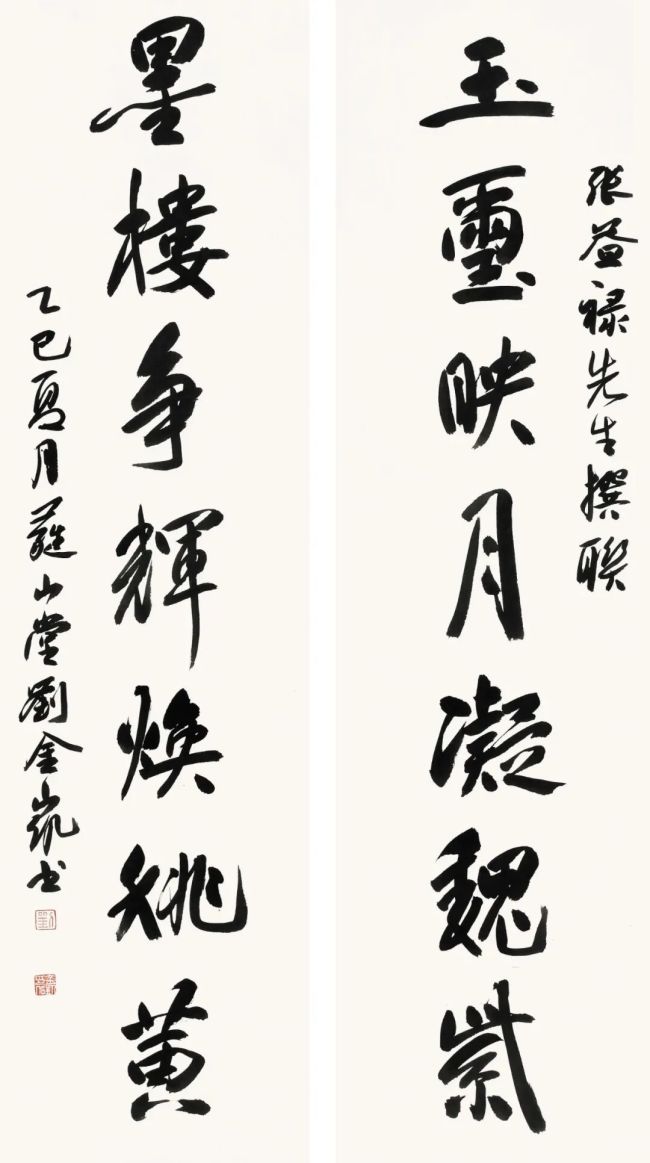 張益禄先生撰聯
玉璽映月凝魏紫
墨樓争輝焕姚黄
乙巳夏月山堂劉金凱书